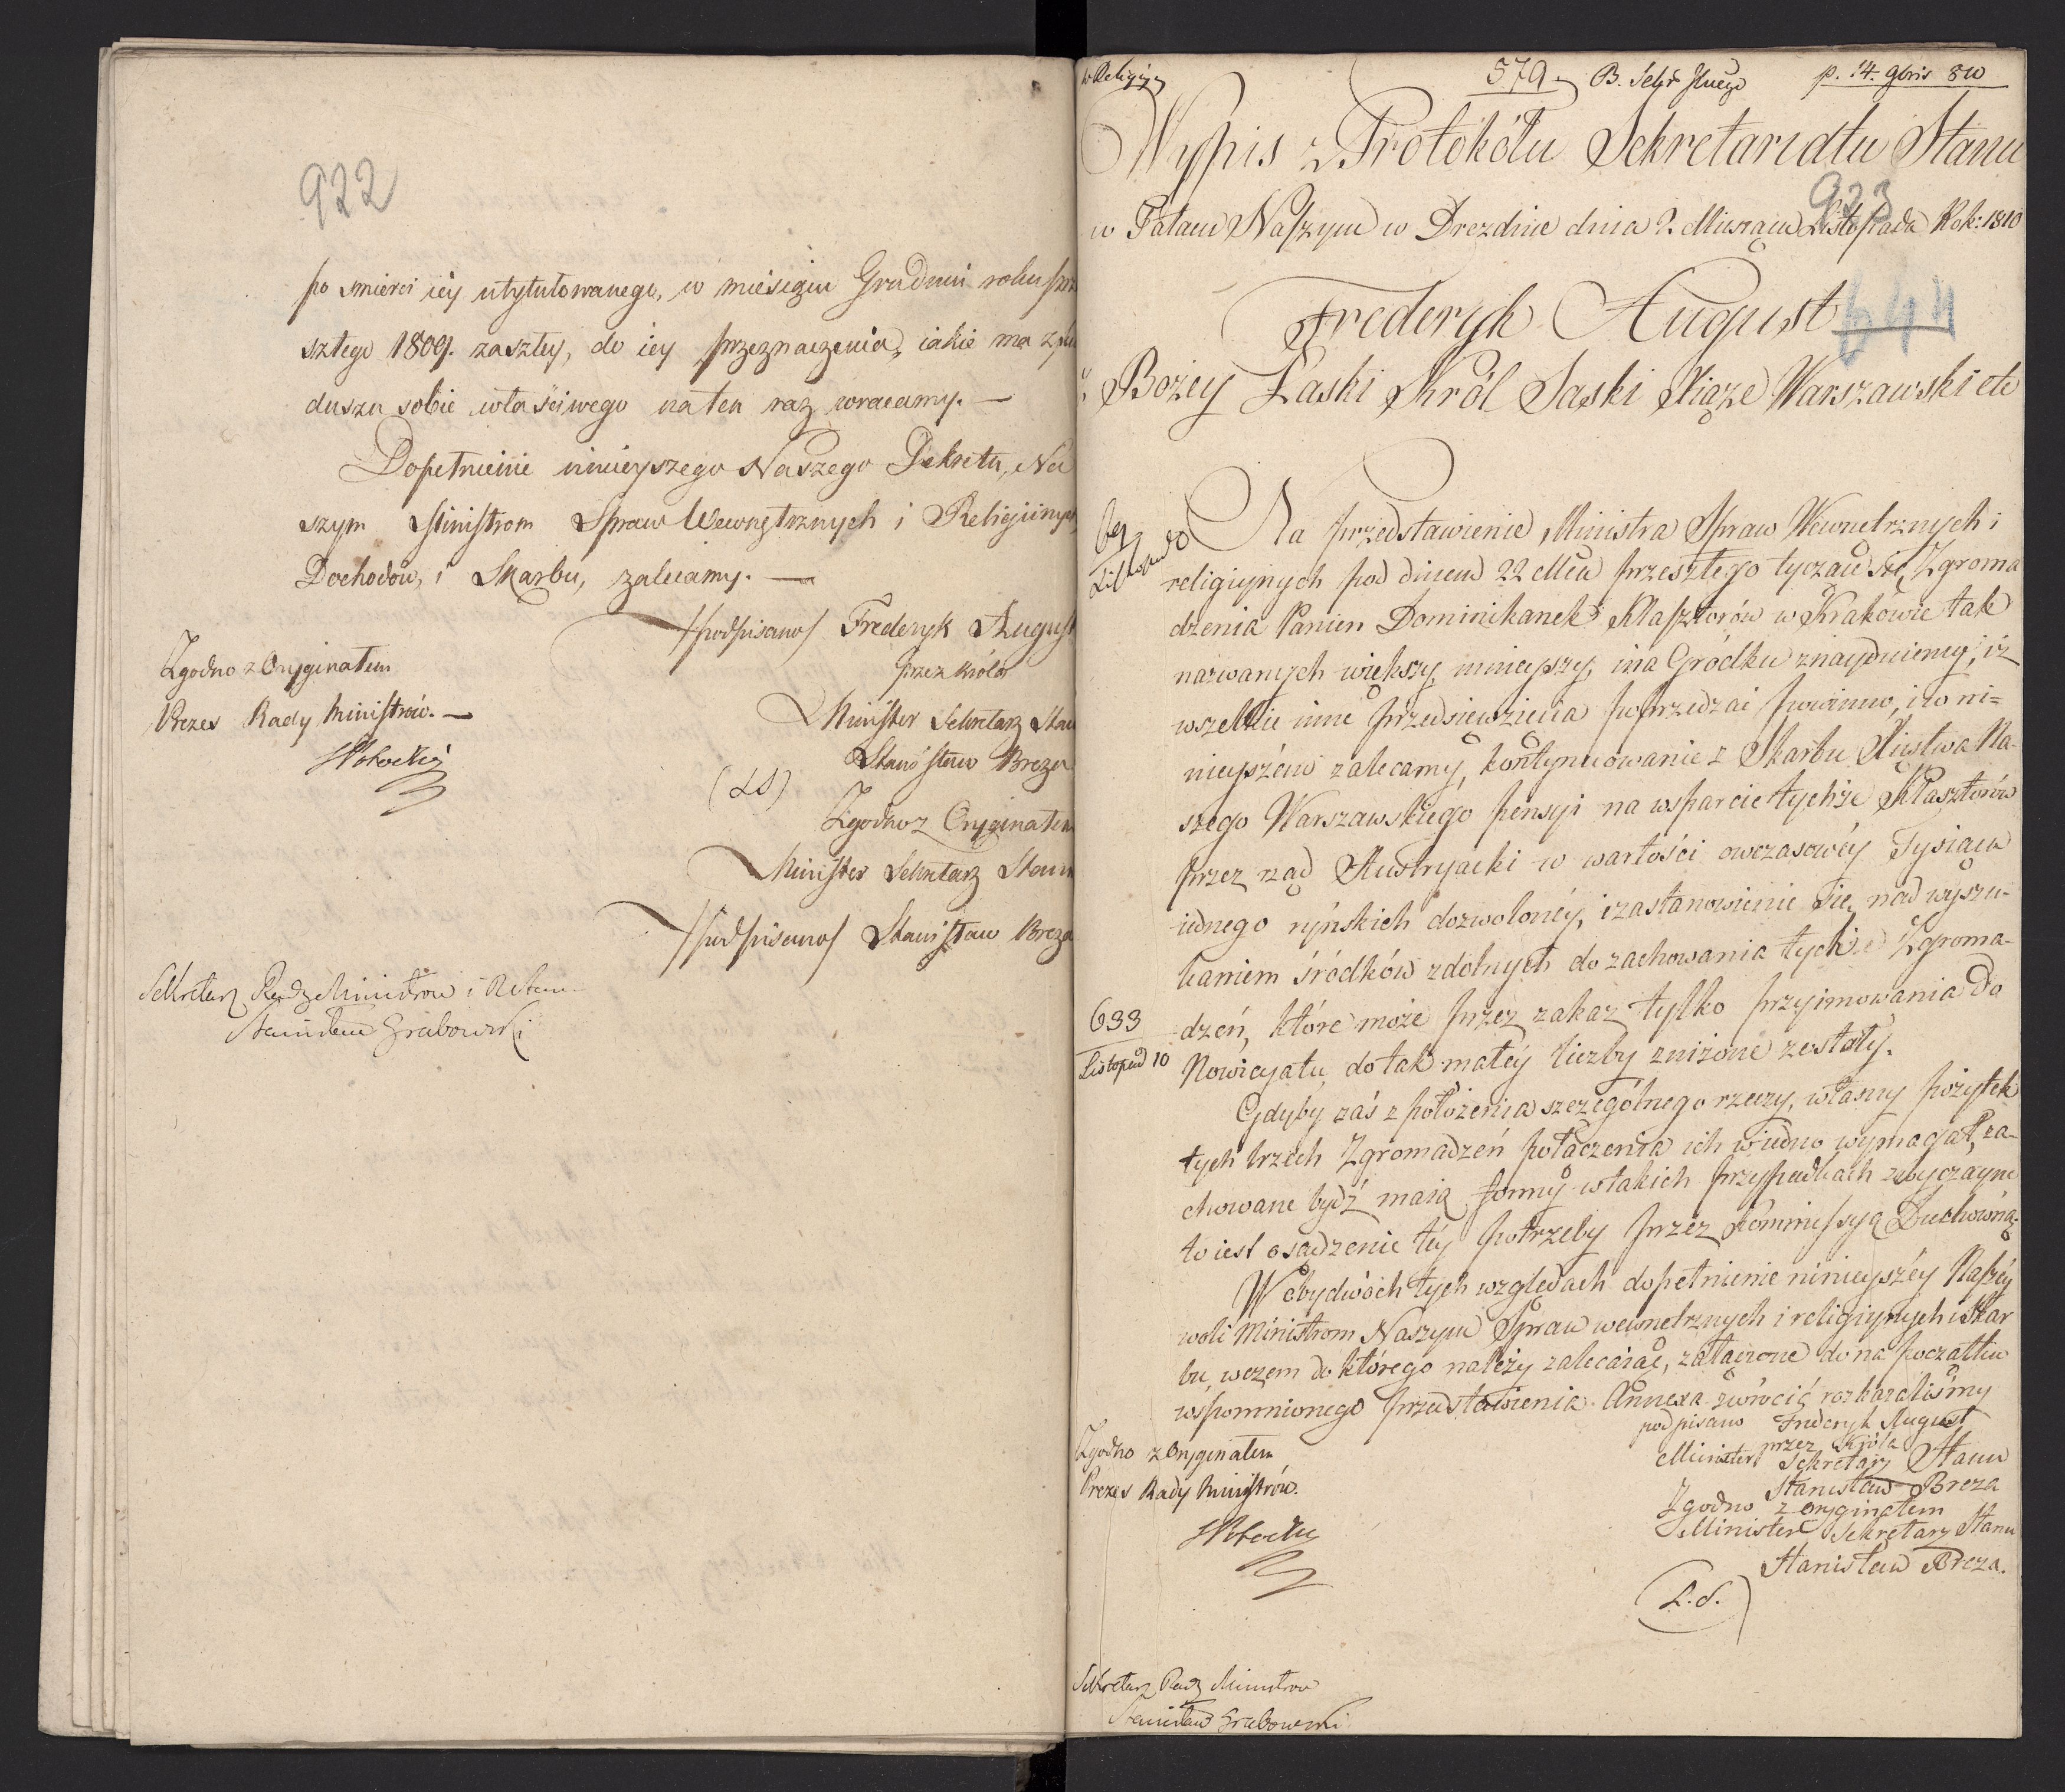 922
po smierci iéy utytułowanego, w miesiącu Grudniu roku prze
szłego 1809. zaszłey, do iey przeznaczenia, iakie ma z fun
duszu sobie właściwego na ten raz wracamy. —
Dopełnienie ninieyszego Naszego Dekretu, Na
szym Ministrom Spraw Wewnętrznych i Religiinych,
Dochodów, i Skarbu, zalecamy. —
/podpisano/ Frederyk August
przez Króla
Minister Sekretarz Stanu
Stanisław Breza
(LS)
Zgodno z Oryginałem
Minister Sekretarz Stanu
/podpisano/ Stanisław Breza
Zgodno z Oryginałem
Prezes Rady Ministrów. —
SPotocki
Sekretarz Rady Ministrow i R. Stanu
Stanisław Grabowski
w Religijn
579. p. 14. 9bris 810
Wypis z Protokółu Sekretariatu Stanu
923
w Pałacu Naszym w Dreznie dnia 2. Miesiąca Listopada Rok: 1810
Frederyk August
644
z Bożey Łaski Król Saski Xiąże Warszawski etc
69
Listopada
Na przedstawienie Ministra Spraw Wewnetrznych i
religiynych pod dniem 22 Mca przeszłego tyczące się Zgroma
dzenia Panien Dominikanek Klasztorów w Krakowie tak
nazwanych większy, mnieyszy, i na Gródku znayduiemy, iż
wszelkie inne przedsięwzięcia poprzedzać powinno, i to ni=
nieyszém zalecamy, kontynuowanie z Skarbu Xięstwa Na-
szego Warszawskiego pensyi na wsparcie tychże Klasztorów
przez rząd Austryacki w wartości owczasowéy Tysiąca
iednego ryńskich dozwolonéy, i zastanowienie się nad wyszu-
kaniem śródków zdolnych do zachowania tychże Zgroma-
dzeń, które może przez zakaz tylko przyimowania do
Nowicyatu, do tak małéy liczby zniżone zostały.
633
Listopad 10
Gdyby zaś z położenia szczególnego rzeczy, własny pożytek
tych trzech Zgromadzeń połączenia ich w iedno wymagał, za-
chowane bydź maią formy w takich przypadkach zwyczayne
to iest osądzenie téy potrzeby przez Kommissyą Duchowną.
W obydwóch tych względach dopełnienie ninieyszéy Naszéy
woli Ministrom Naszym Spraw wewnetrznych i religiynych i Skar
bu, w czem do którego należy zalecaiąc, załączone do na początku
wspomnionego przedstawienia Annexa zwrócić rozkazaliśmy
podpisano Frederyk August
przez Króla
Minister Sekretarz Stanu
Stanisław Breza
Zgodno z oryginałem
Minister Sekretarz Stanu
Stanisław Breza.
(L.S.)
Zgodno z Oryginałem
Prezes Rady Ministrów.
SPotocki
Sekretarz Rady Ministrow
Stanisław Grabowski